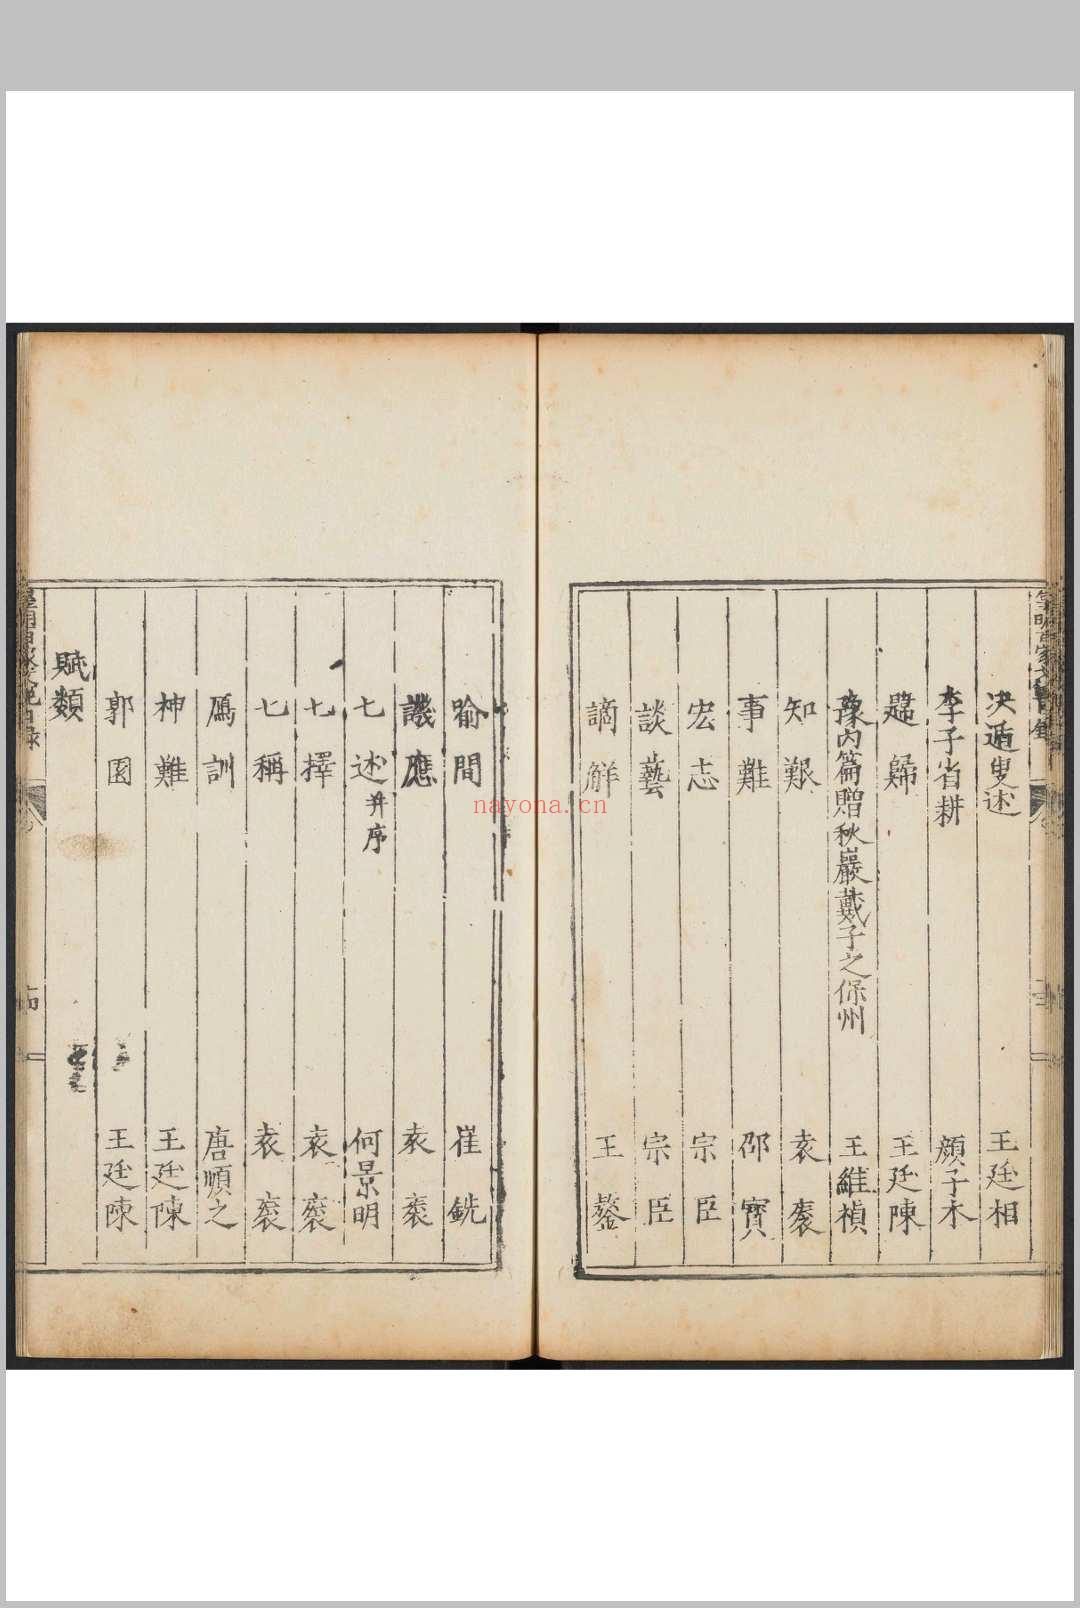 決遁叟述 王廷相
李子省耕 顔子木
歸 王廷陳
豫内篇贈秋巖戴子之保州 王維禎
知艱 袁袠
事難 邵寶
宏志 宗臣
談藝 宗臣
謫解 王鏊
喻間 崔銑
譏應 袁袠
七述并序 何景明
七擇 袁袠
七稱 袁袠
鴈訓 唐順之
神難 王廷陳
郭園 王廷陳
賦類
nayona.cn